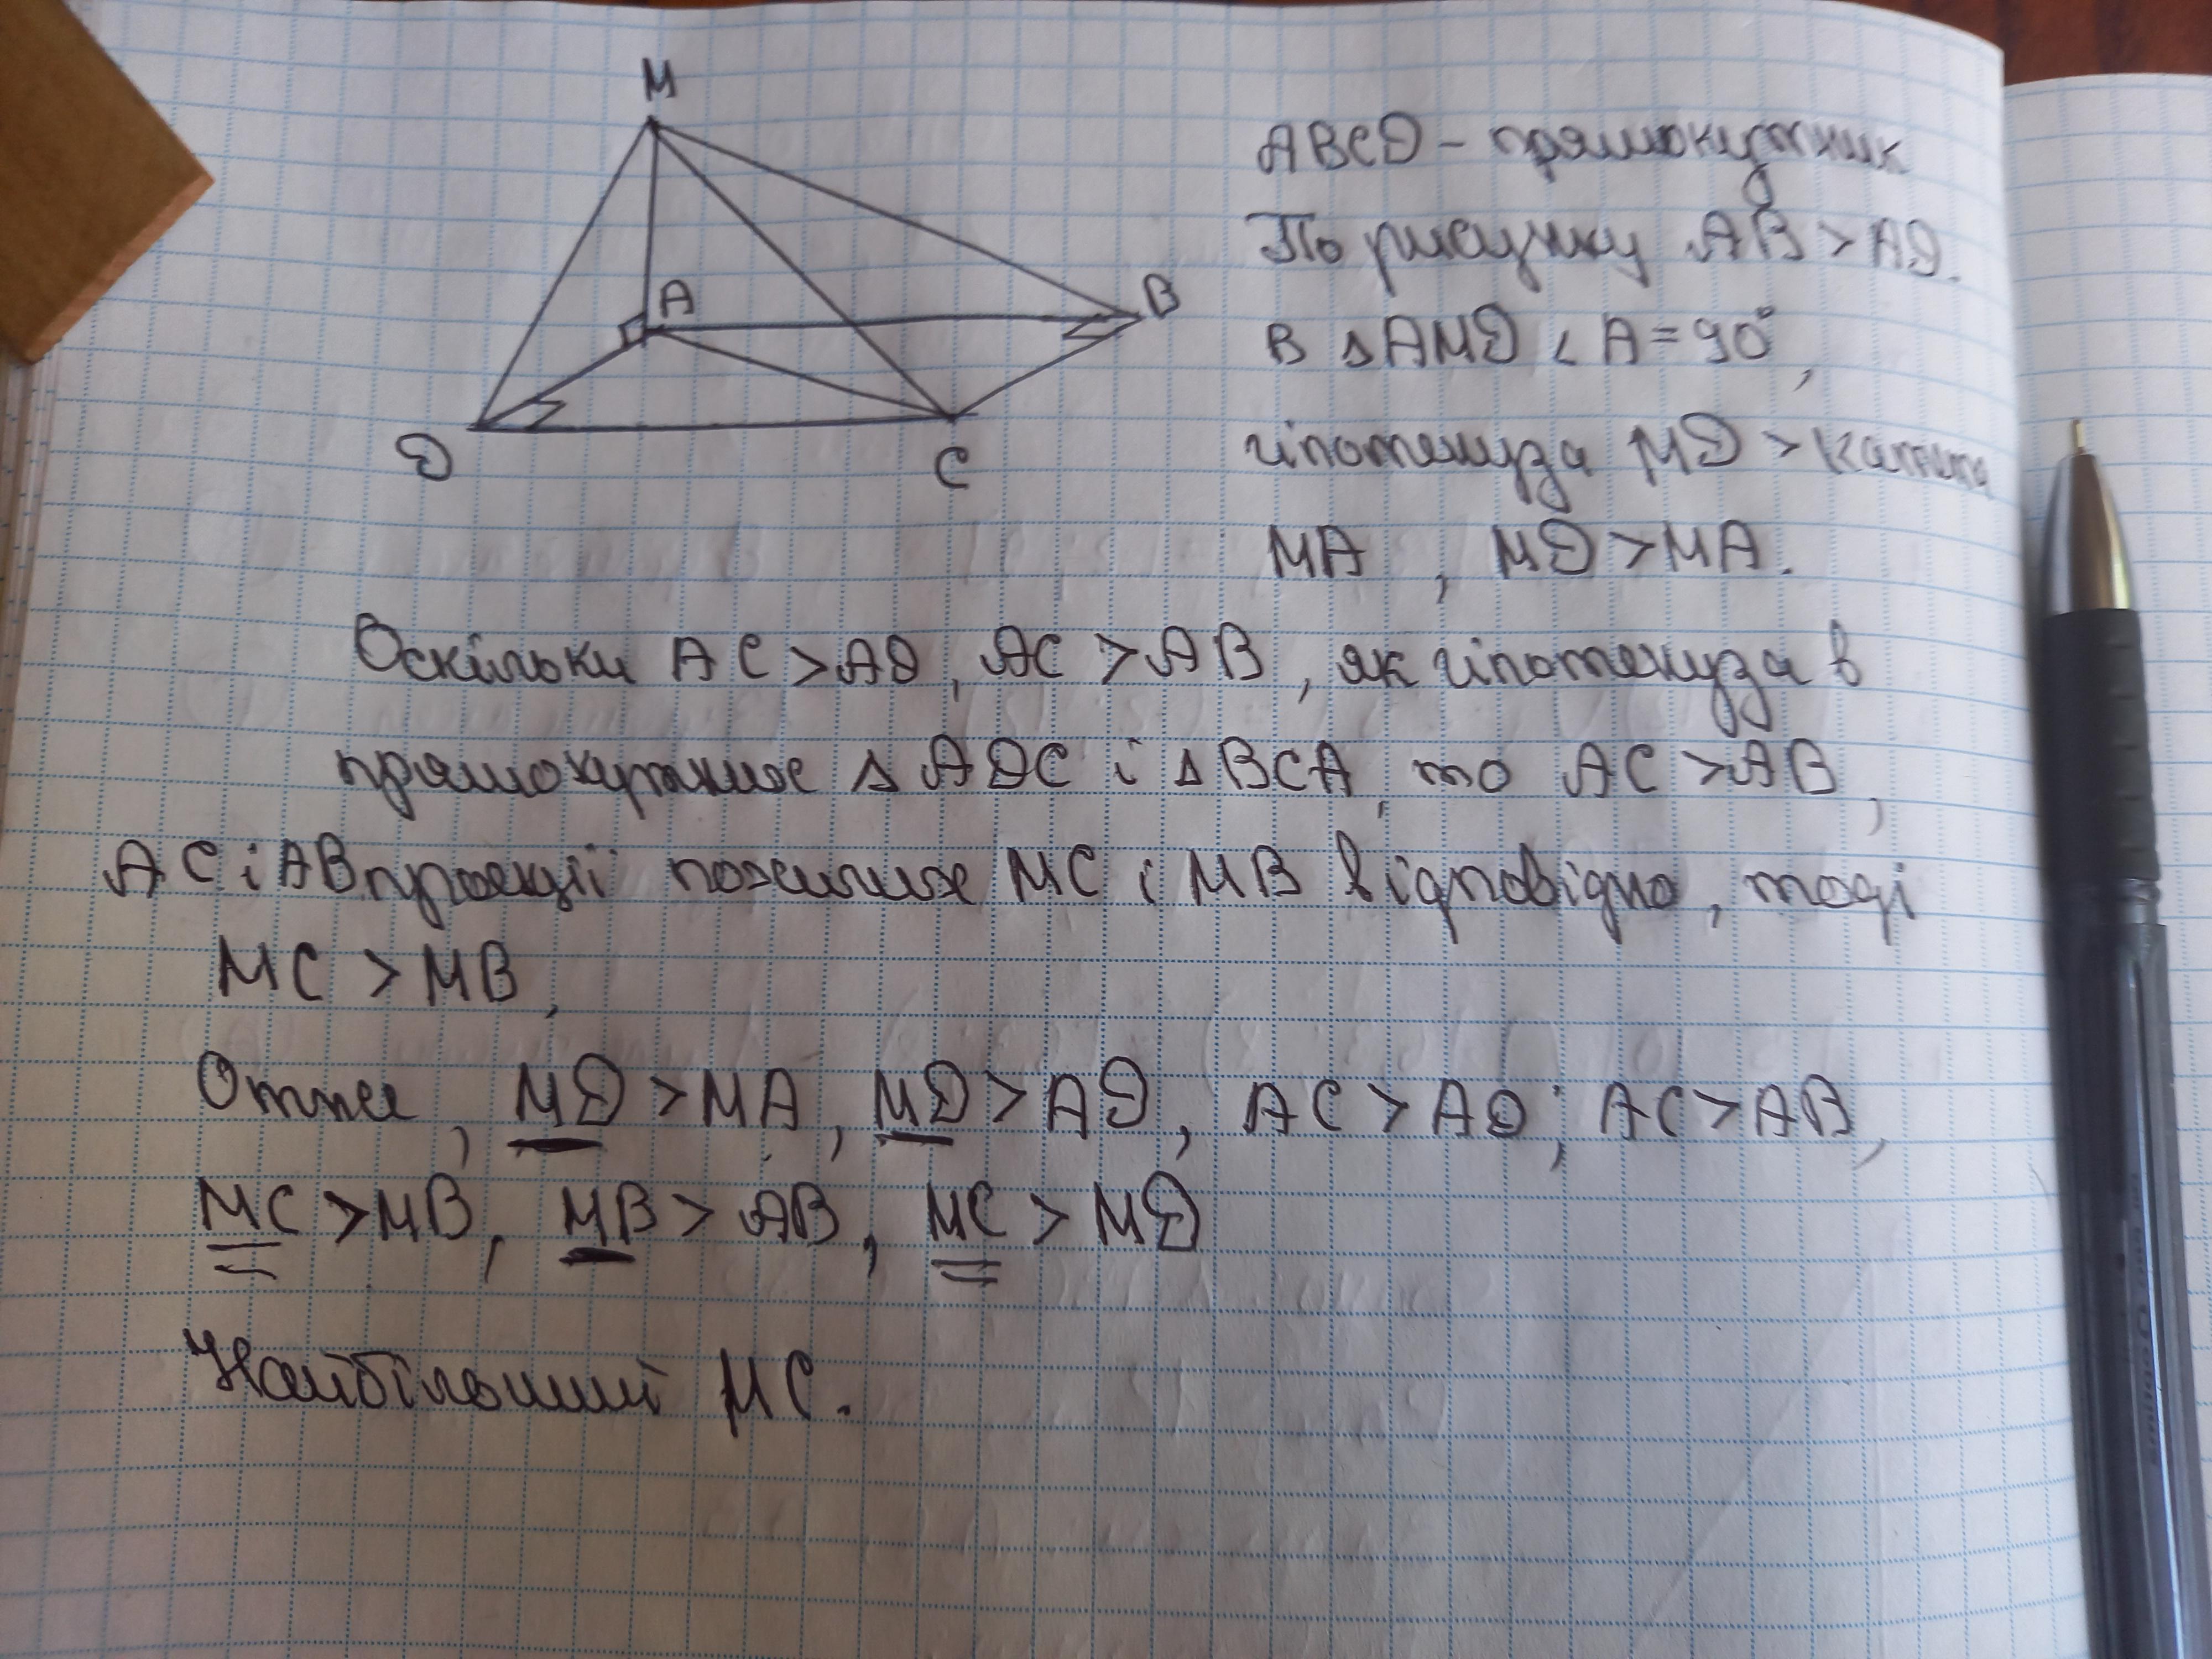 М
А
В
D
С
ABCD - прямокутник
По рисунку AB > AD.
В △AMD < A = 90°,
гіпотенуза MD > катета
MA , MD > MA.
Оскільки AC > AD, AC > AB, як гіпотенуза в
прямокутних △ ADC і △ BCA, то AC > AB,
AC і AB проекції похилих MC і MB відповідно, тоді
MC > MB,
Отже, MD > MA, MD > AD, AC > AD; AC > AB,
MC > MB, MB > AB, MC > MD
Найбільший MC.